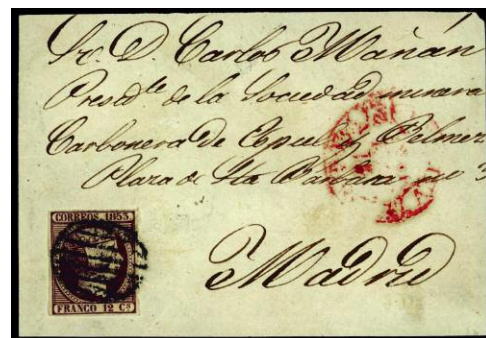 Sr. D. Carlos Mañán
Presid.te de la Sociedad minera
Carbonera de Espiel y Belmez
Plaza de Sta Barbara no 3
Madrid
CORREOS. 1853.
FRANCO 12 Cs.